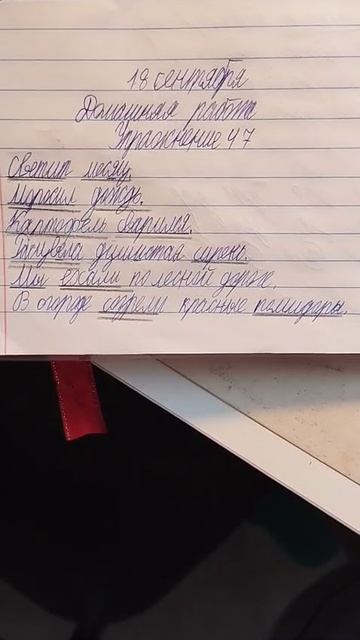 18 сентября
Домашняя работа
Упражнение 47
Светит месяц.
Моросил дождь.
Картофель сварился.
Расцвела душистая сирень.
Мы ехали по лесной дороге.
В огороде созрели красные помидоры.